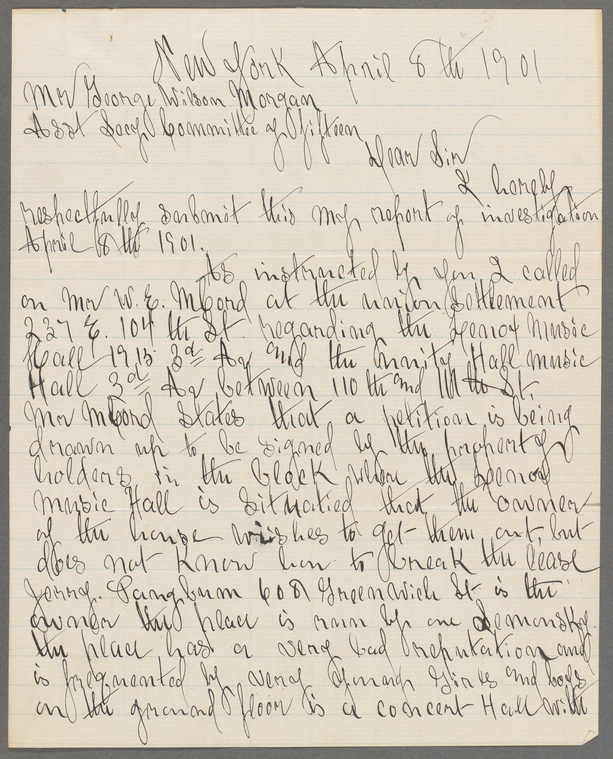 New York April 8th 1901
Mr George Wilson Morgan
Asst Secy Committee of Fifteen
Dear Sir
I hereby
respectfully submit this my report of investigation
April 8th 1901.
As instructed by you I called
on Mr W. E. McCord at the union Settlement
237 E. 104th St. regarding the Lenox Music
Hall 1915 3d Av and the Trinity Hall music
Hall 3d Av between 110th and 111th St.
Mr McCord States that a petition is being
drawn up to be signed by the property
holders in the block where the Lenox
Music Hall is situatied that the owner
of the house wishes to get them out, but
does not know how to break the lease
Jerry. Pangburn 608 Greenwich St is the
owner the place is run by one Lemonsky.
the place has a very bad reputation and
is frequented by very young Girls and boys
on the ground floor is a concert Hall with